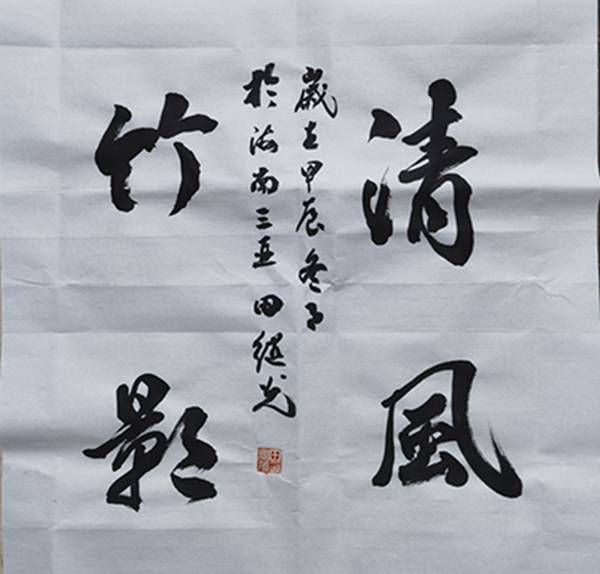 清風
歲在甲辰冬月
於海南三亞田繼光
竹影